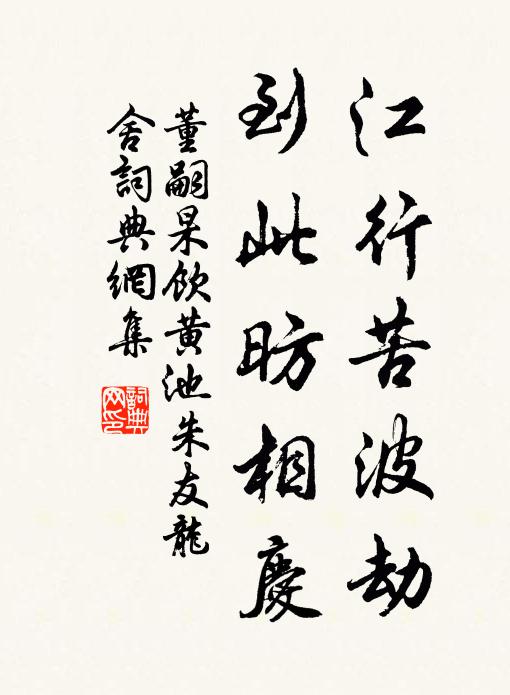 江行苦波劫
到此昉相慶
董嗣杲飲黄池朱友龍
舍詞典網集
詞典网印